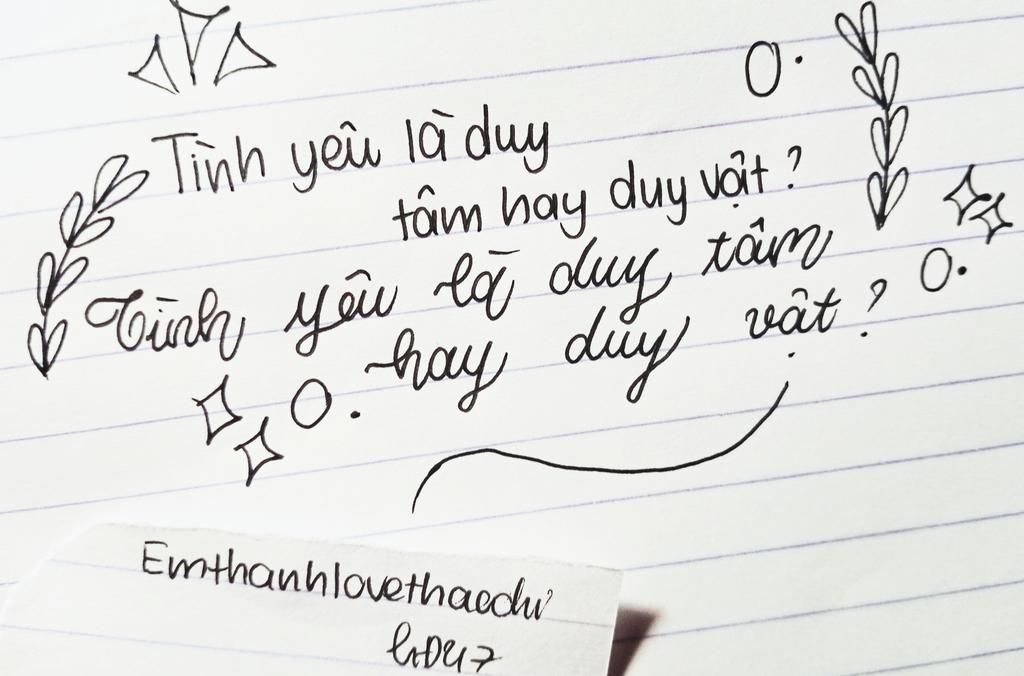 Tình yêu là duy
tâm hay duy vật?
Tình yêu là duy tâm
hay duy vật?
Emthanhlovethaochi